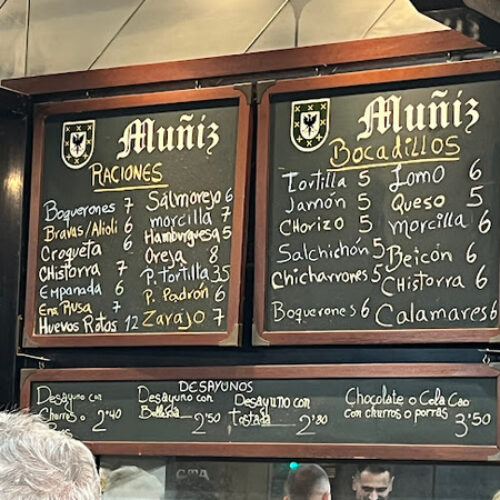 Muñiz
RACIONES
Boquerones 7
Bravas/Alioli 6
Croqueta 6
CHistorra 7
Empanada 6
Ens Rusa 7
Huevos Rotos 12
Salmorejo 6
morcilla 7
Hamburguesa 5
Oreja 8
P. tortilla 35
P. Padrón 6
Zarajo 7
Muñiz
Bocadillos
Tortilla 5
Jamón 5
CHorizo 5
Salchichón 5
Chicharrones 5
Boquerones 6
Lomo 6
Queso 5
morcilla 6
Beicon 6
CHistorra 6
Calamares 6
DESAYUNOS
Desayuno con
Churros o 2'40
Desayuno con
2'50
Desayuno con
Tostada 2'80
Chocolate o Cola Cao
Con churros o porras 3'50